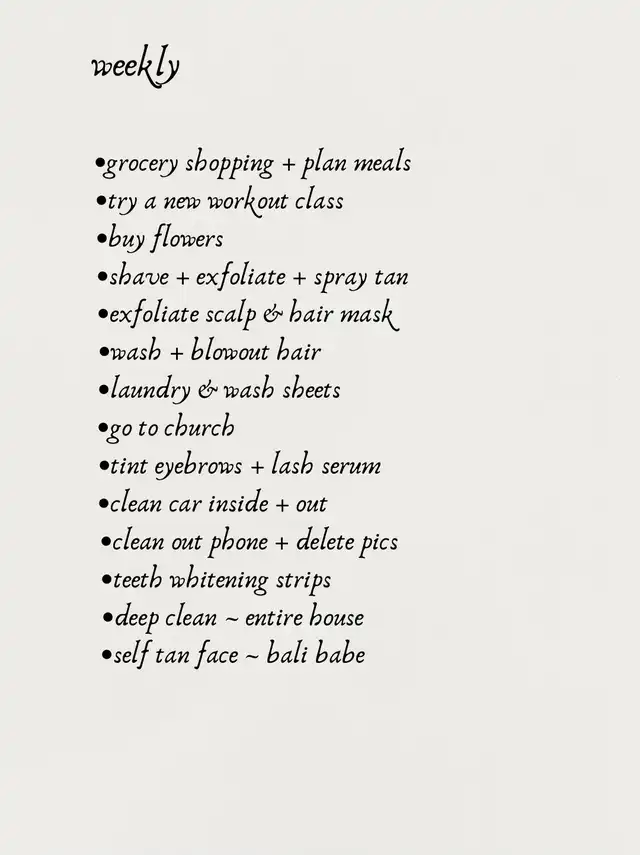 weekly
•grocery shopping + plan meals
•try a new workout class
•buy flowers
•shave + exfoliate + spray tan
•exfoliate scalp & hair mask
•wash + blowout hair
•laundry & wash sheets
•go to church
•tint eyebrows + lash serum
•clean car inside + out
•clean out phone + delete pics
•teeth whitening strips
•deep clean ~ entire house
•self tan face ~ bali babe